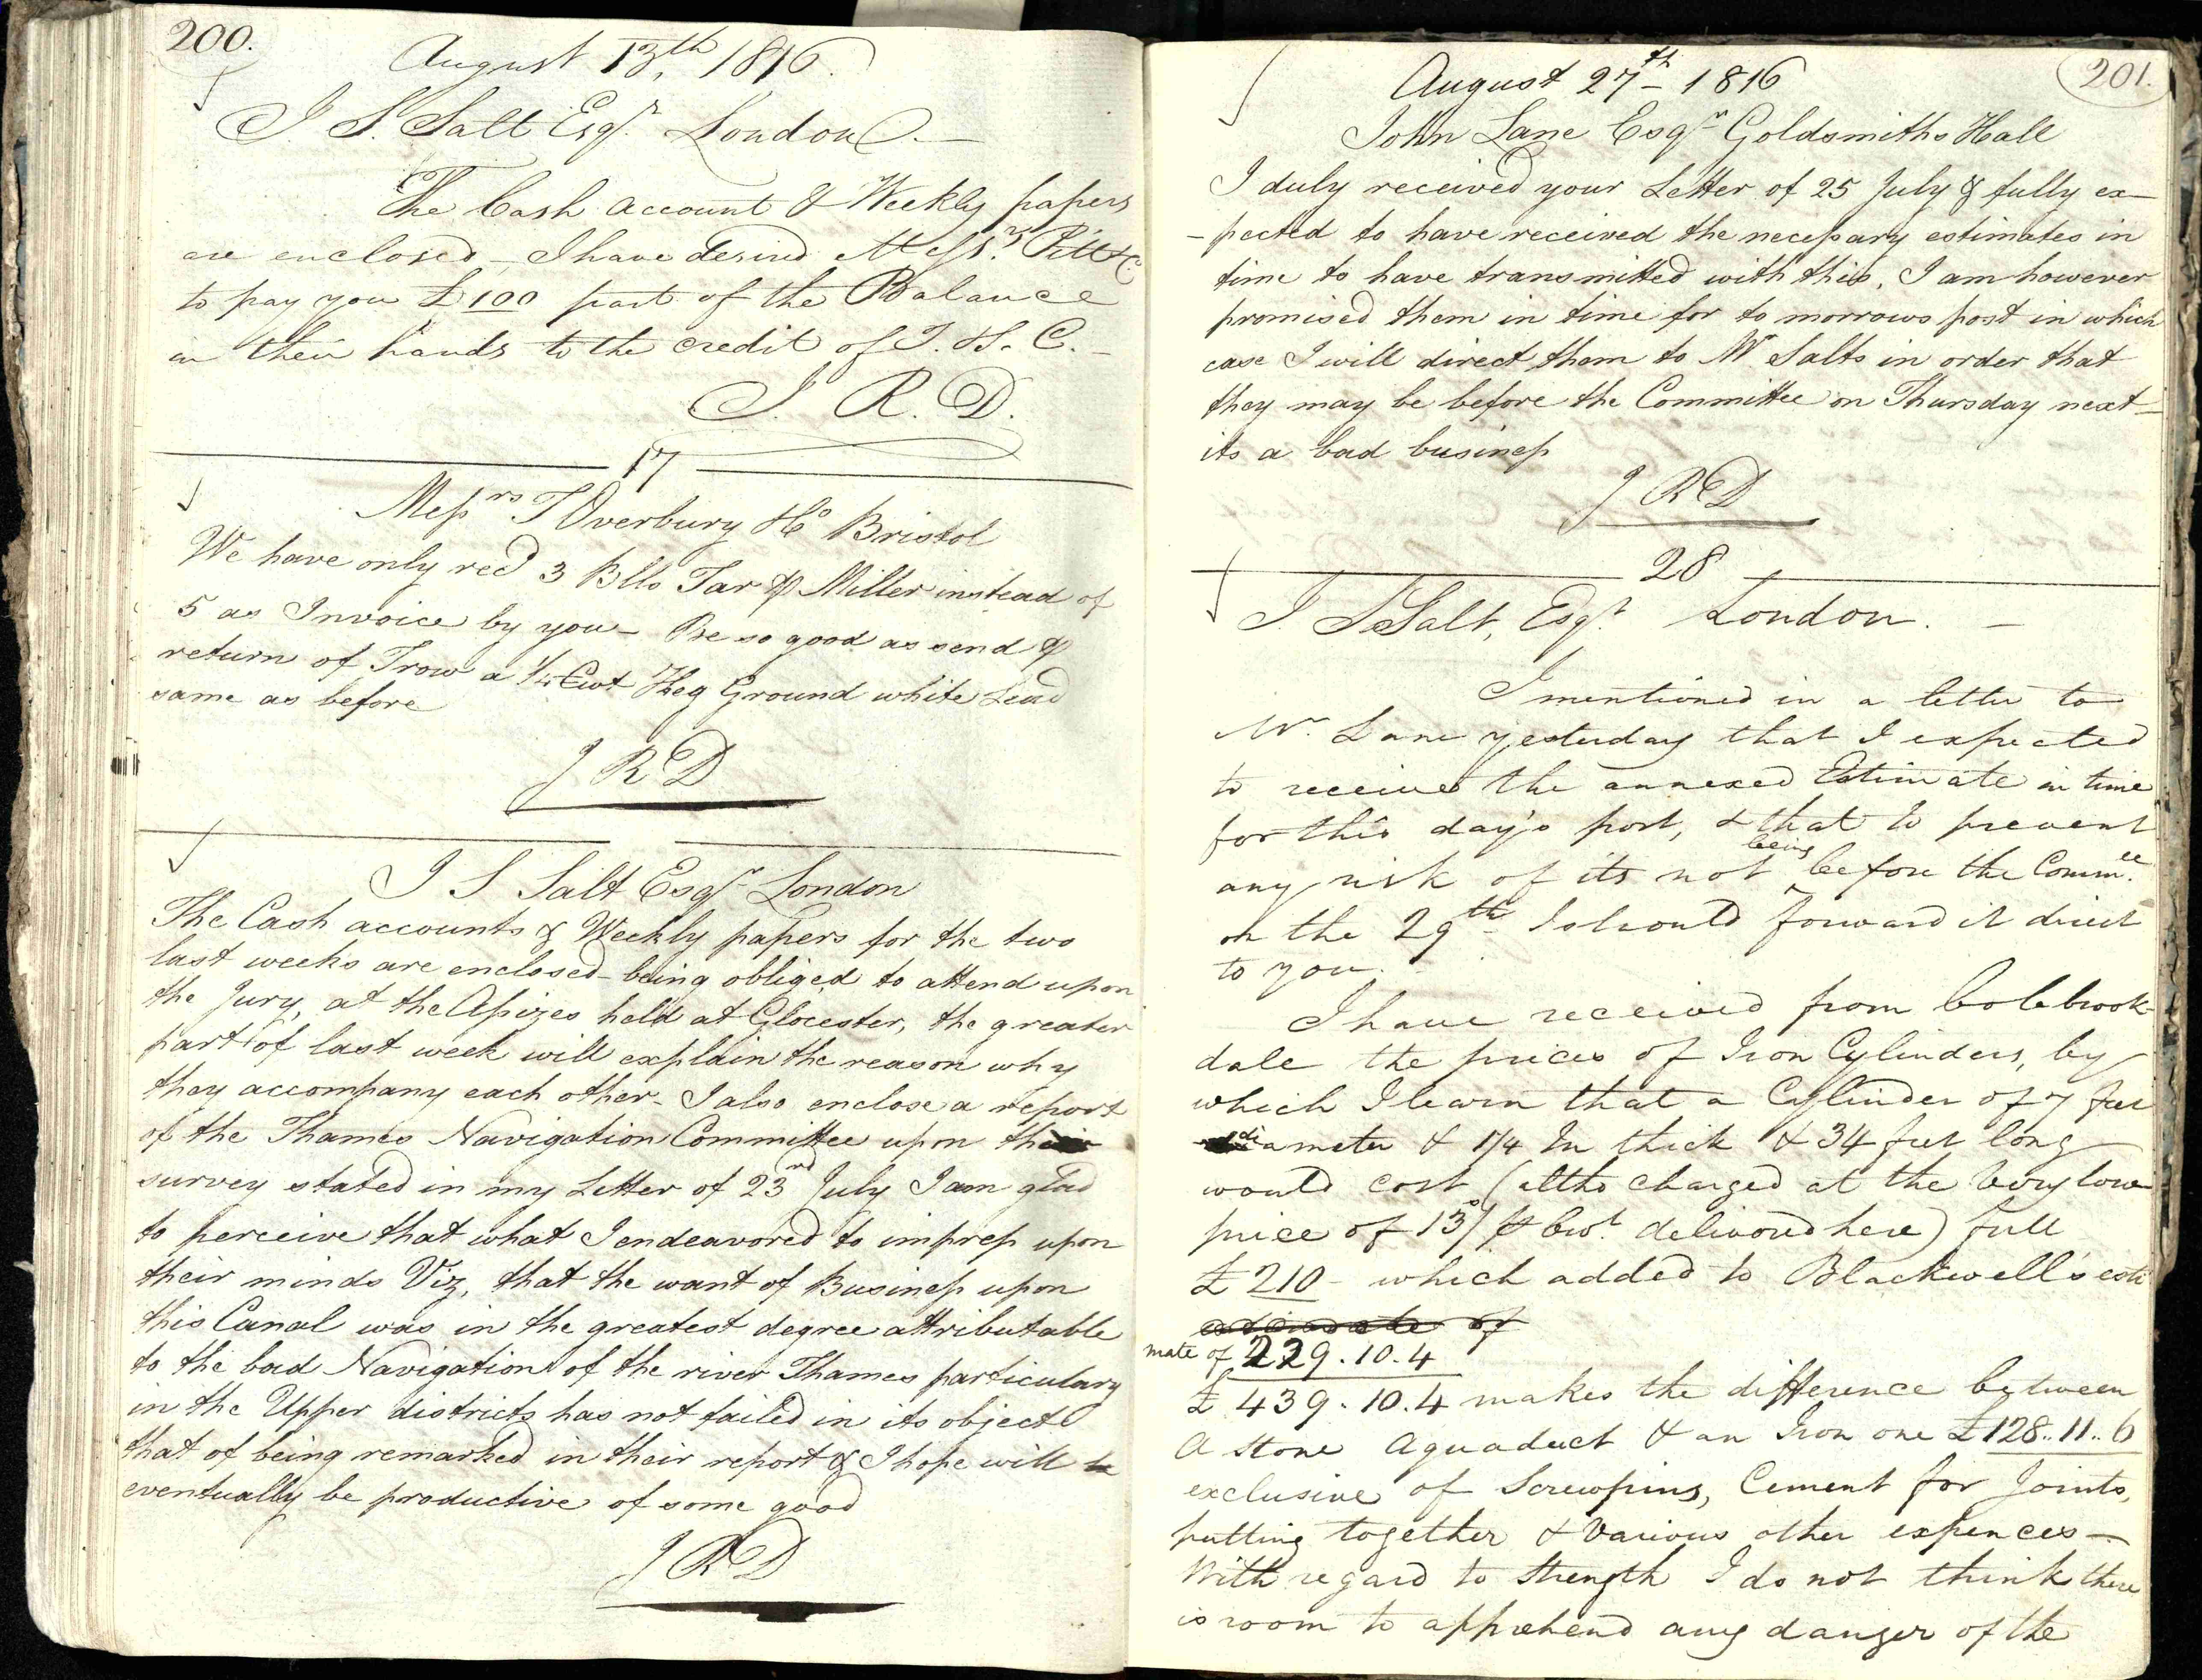 200.
August 13th, 1816.
J S. Salt Esqr. London.
The Cash account & Weekly papers
are enclosed – I have desired Messrs. Pitt & Co.
to pay you £100 part of the Balance
in their hands to the credit of T. S. C. –
J. R. D.
17
Messrs T Overbury & Co Bristol
We have only recd 3 Blls Tar ⅌ Miller instead of
5 as Invoice by you – Be so good as send ⅌
return of Trow a ¼ Cwt Keg Ground white Lead
same as before
J R D
J S Salt Esqr London
The Cash accounts & Weekly papers for the two
last weeks are enclosed – being obliged to attend upon
the Jury, at the Assizes held at Glocester, the greater
part of last week will explain the reason why
they accompany each other – I also enclose a report
of the Thames Navigation Committee upon their
survey stated in my Letter of 23rd July I am glad
to perceive that what I endeavored to impress upon
their minds Viz, that the want of Business upon
this Canal was in the greatest degree attributable
to the bad Navigation of the river Thames particulary
in the Upper districts has not failed in its object
that of being remarked in their report & I hope will be
eventually be productive of some good
J R D
201.
August 27th – 1816
John Lane Esqr Goldsmiths Hall
I duly received your Letter of 25 July & fully ex–
–pected to have received the necessary estimates in
time to have transmitted with this, I am however
promised them in time for to morrows post in which
case I will direct them to Mr Salts in order that
they may be before the Committee on Thursday next –
its a bad business
J R D
28
J. S. Salt, Esqr. London. –
I mentioned in a letter to
Mr. Lane yesterday that I expected
to receive the annexed Estimate in time
for this day's post, & that to prevent
any risk of its not being before the Commee.
on the 29th I should forward it direct
to you.
I have received from Colebrook
dale the prices of Iron Cylinders, by
which I learn that a Cylinder of 7 feet
diameter & 1¼ In thick & 34 feet long
would cost (altho charged at the very low
price of 13s/ ⅌ Cwt. delivered here) full
£210 – which added to Blackwell's esti
estimate of
mate of 229.10.4
£439.10.4 makes the difference between
a stone Aquaduct & an Iron one £128..11..6
exclusive of Screwpins, Cement for Joints,
putting together & various other expences –
With regard to Strength I do not think there
is room to apprehend any danger of the